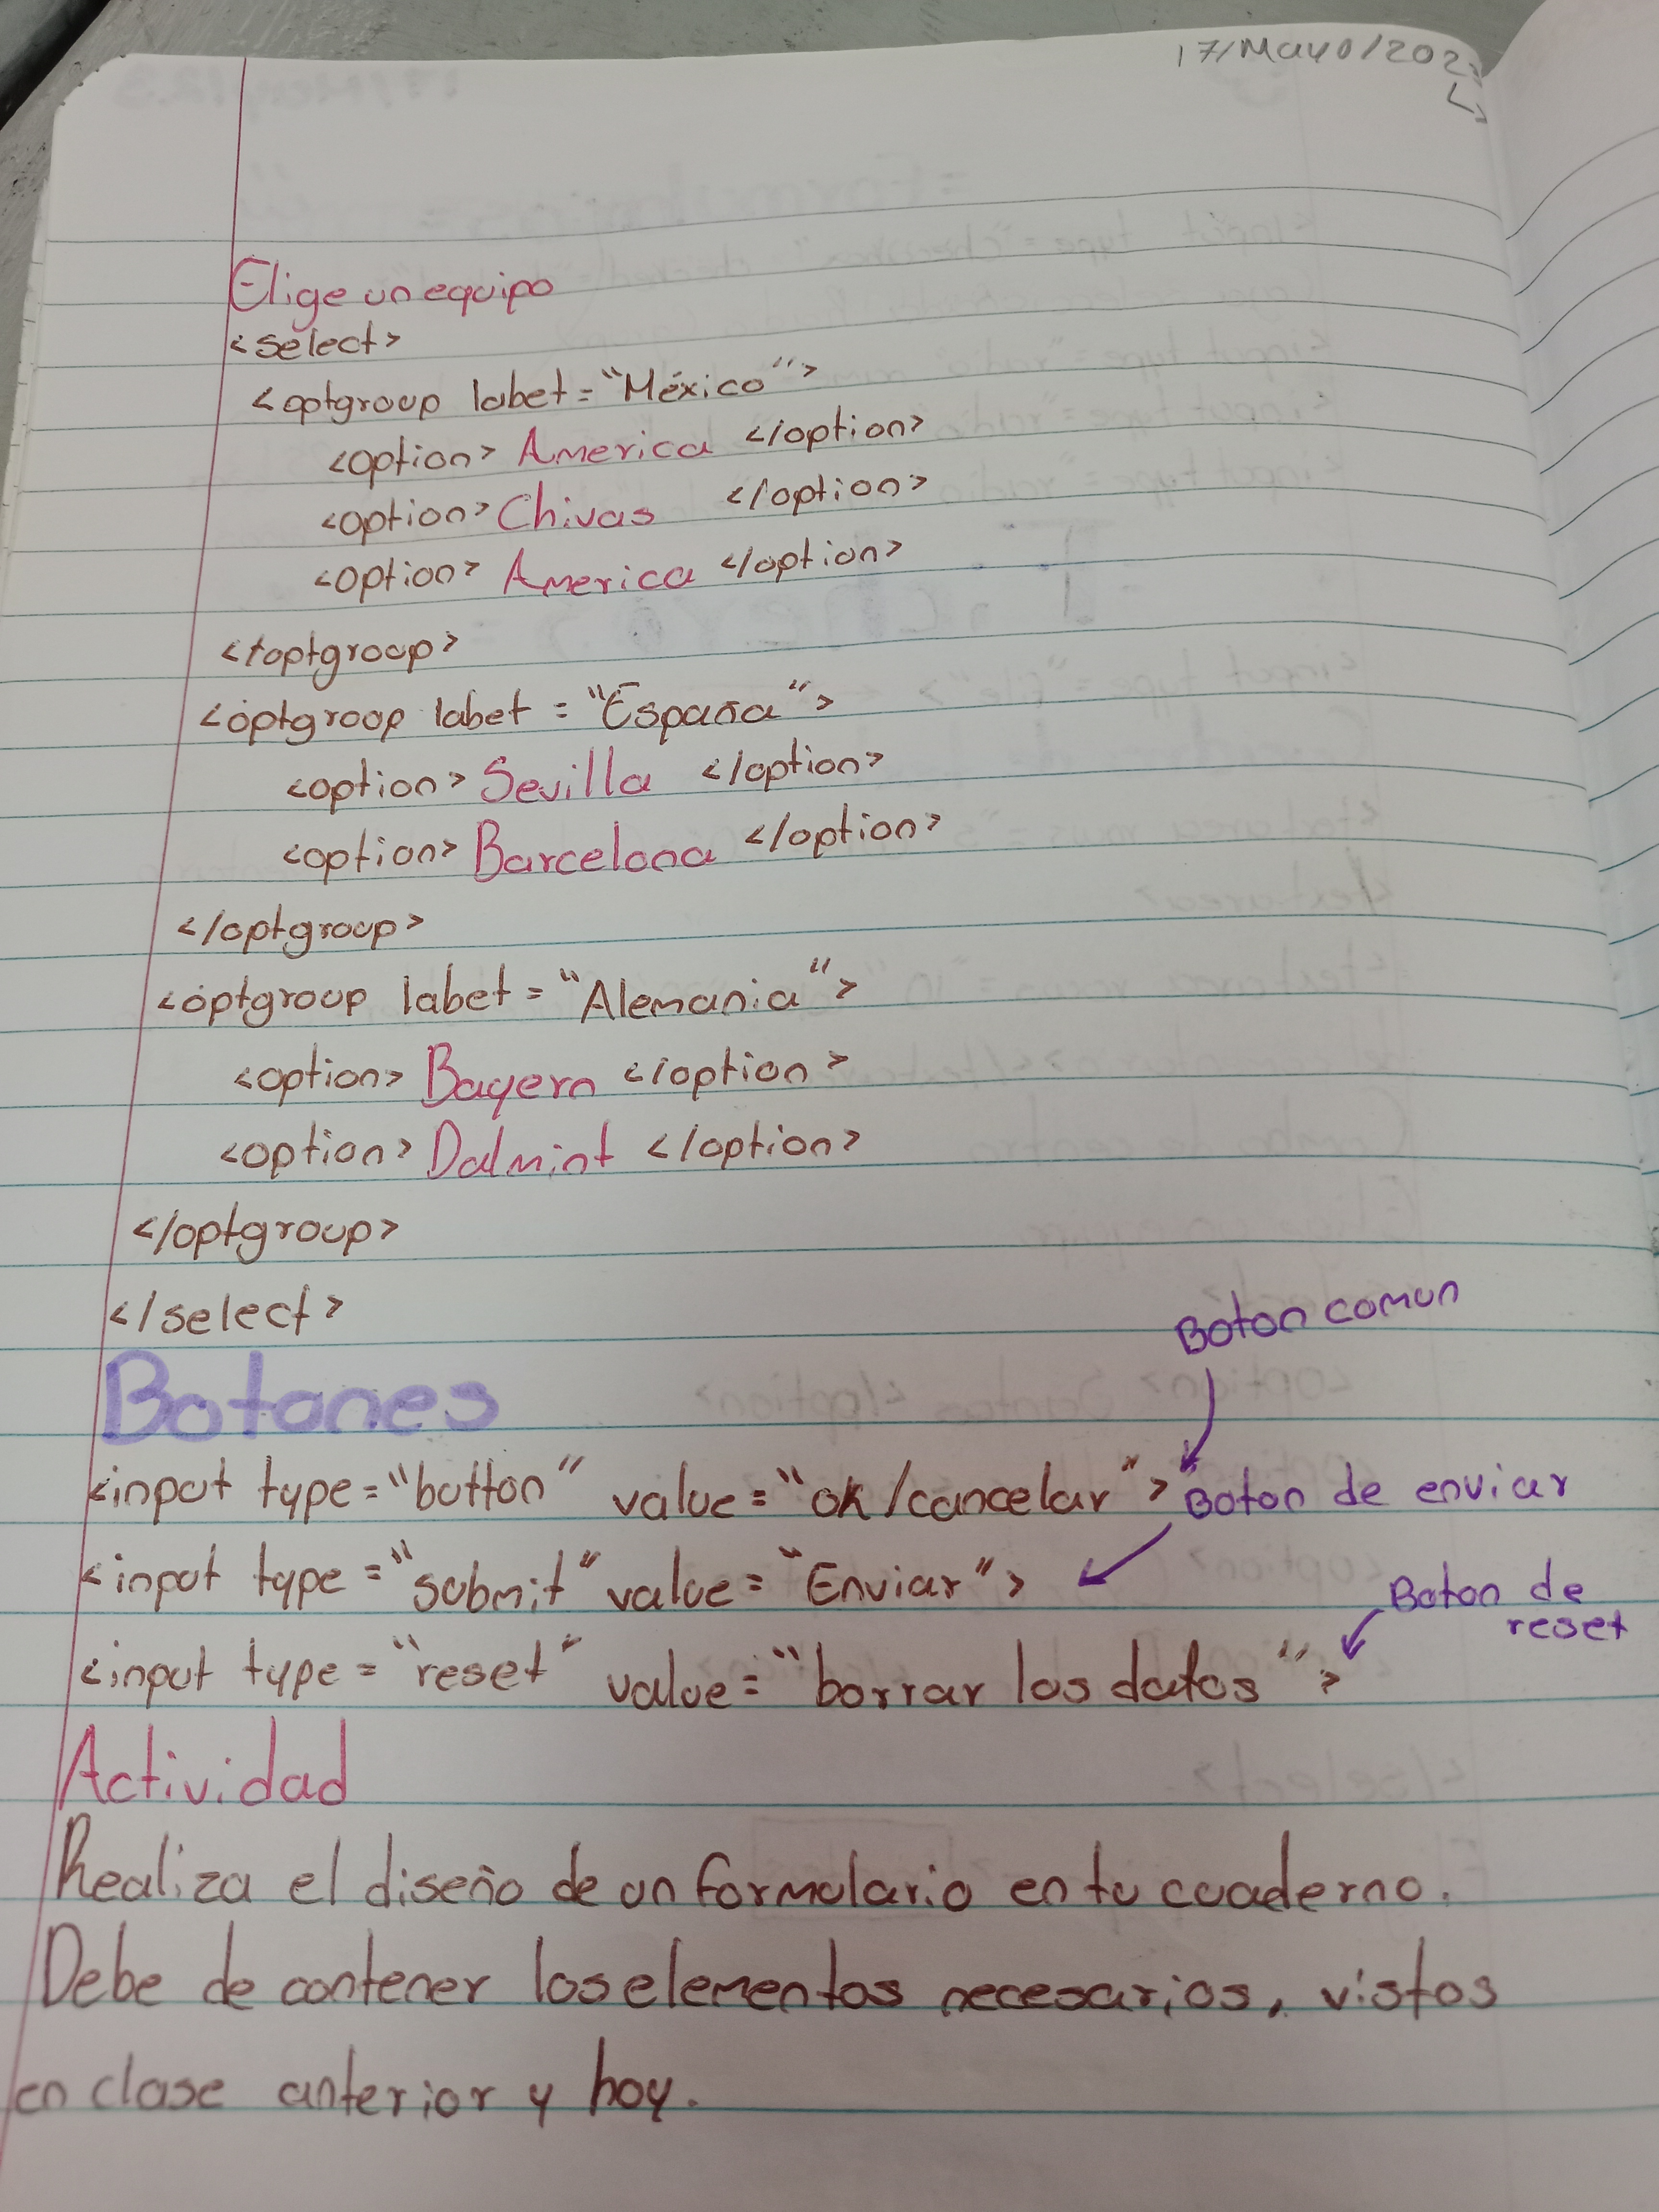 17/Mayo/202
Elige un equipo
<select>
<optgroup label="México">
<option> America </option>
<option> Chivas </option>
<option> America </option>
</optgroup>
<optgroup label = "España">
<option> Sevilla </option>
<option> Barcelona </option>
</optgroup>
<optgroup label = "Alemania">
<option> Bayern </option>
<option> Dalmint </option>
</optgroup>
</select>
Boton comun
Botones
<input type="button" value="ok/cancelar"> Boton de enviar
<input type="submit" value="Enviar">
Boton de
reset
<input type="reset" value="borrar los datos">
Actividad
Realiza el diseño de un formulario en tu cuaderno.
Debe de contener los elementos necesarios, vistos
en clase anterior y hoy.